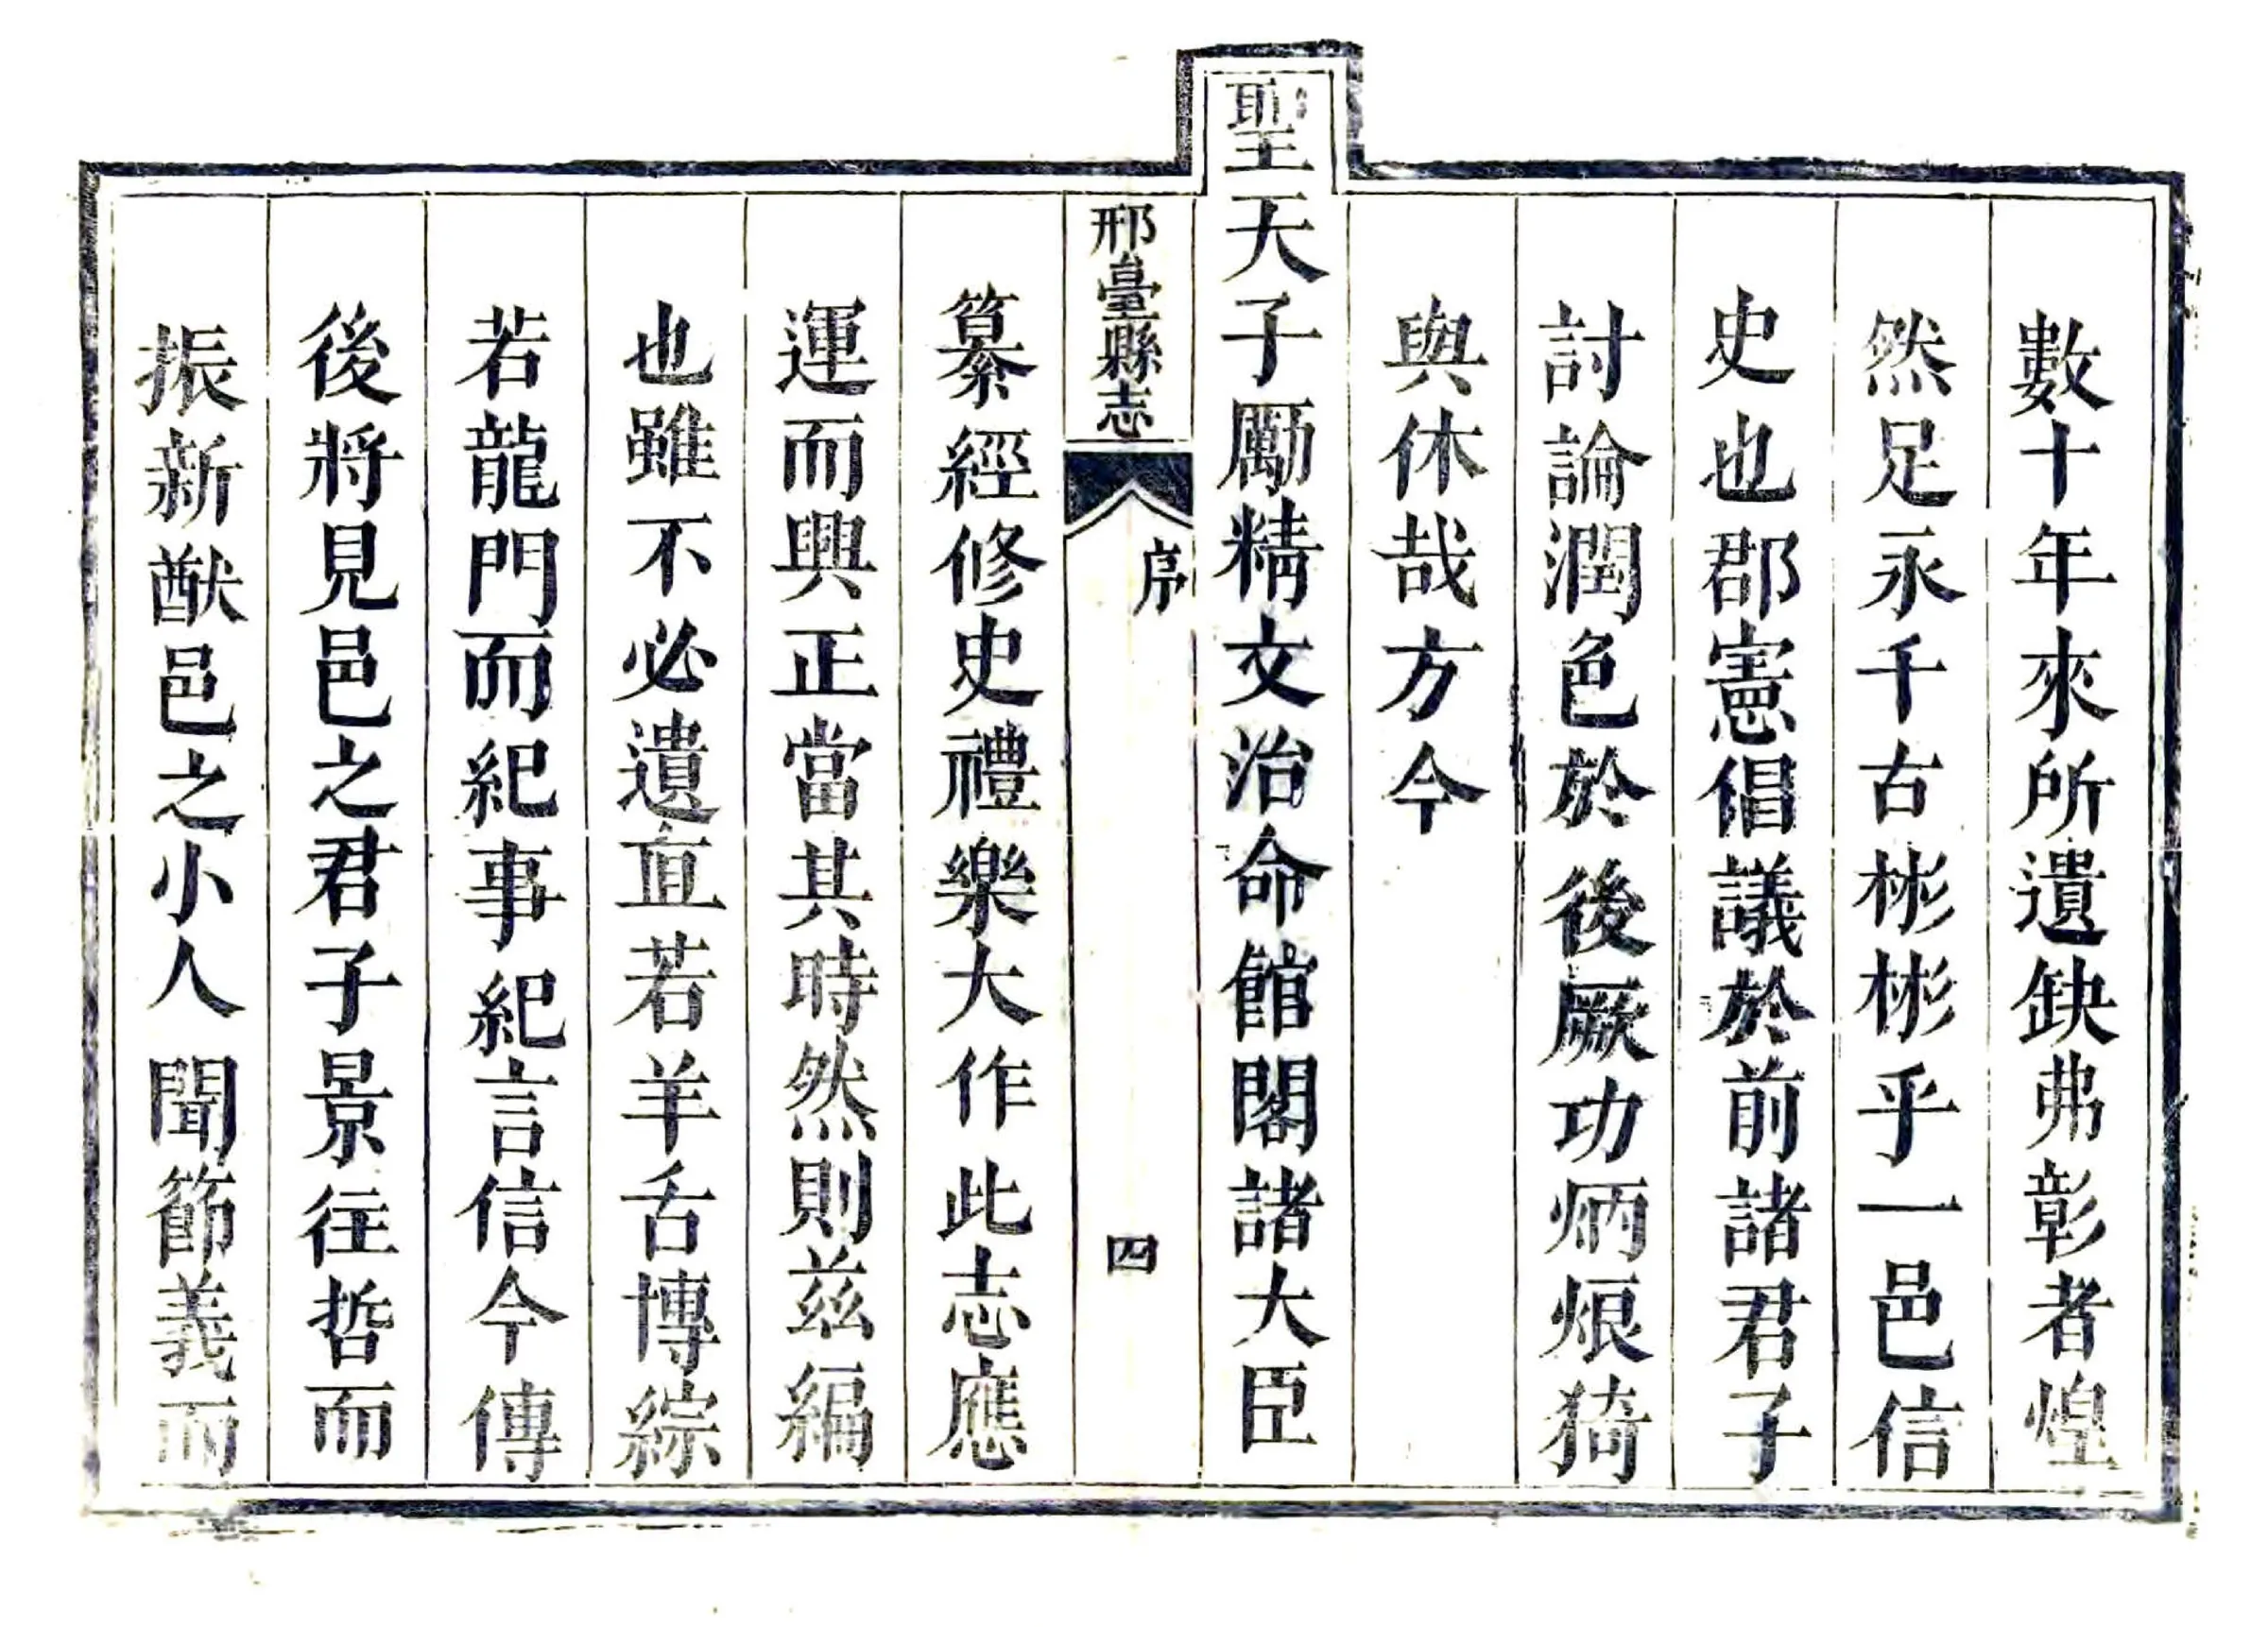 數十年來所遺缺弗彰者煌
然足永千古彬彬乎一邑信
史也郡憲倡議於前諸君子
討論潤色於後厥功炳烺猗
與休哉方今
聖天子勵精文治命館閣諸大臣
邢臺縣志
序
四
纂經修史禮樂大作此志應
運而興正當其時然則茲編
也雖不必遺直若羊舌博綜
若龍門而紀事紀言信今傳
後將見邑之君子景往哲而
振新猷邑之小人聞節義而